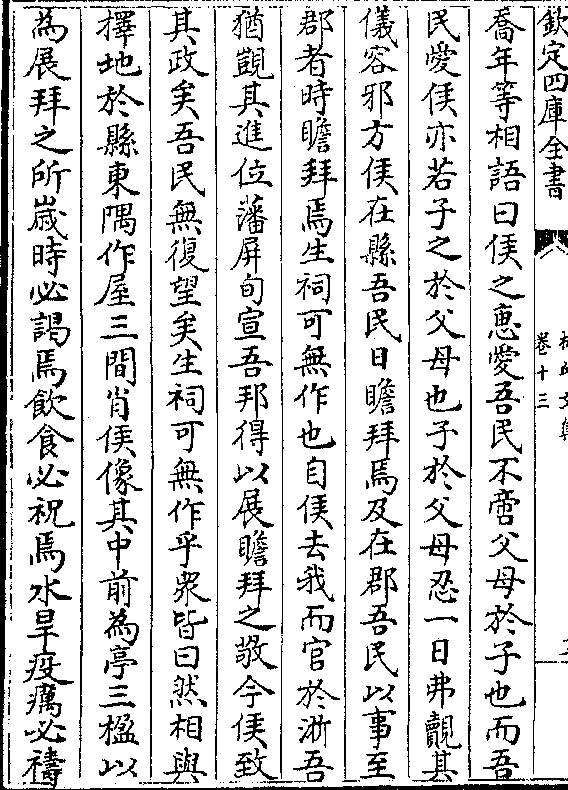 欽定四庫全書
卷十三
喬年等相語曰侯之恵愛吾民不啻父母於子也而吾
民愛侯亦若子之於父母也子於父母忍一日弗覿其
儀容邪方侯在縣吾民日瞻拜焉及在郡吾民以事至
郡者時瞻拜焉生祠可無作也自侯去我而官於浙吾
猶覬其進位藩屏旬宣吾邦得以展瞻拜之敬今侯致
其政矣吾民無復望矣生祠可無作乎衆皆曰然相與
擇地於縣東隅作屋三間肖侯像其中前為亭三楹以
為展拜之所嵗時必謁焉飲食必祝焉水旱疫癘必禱